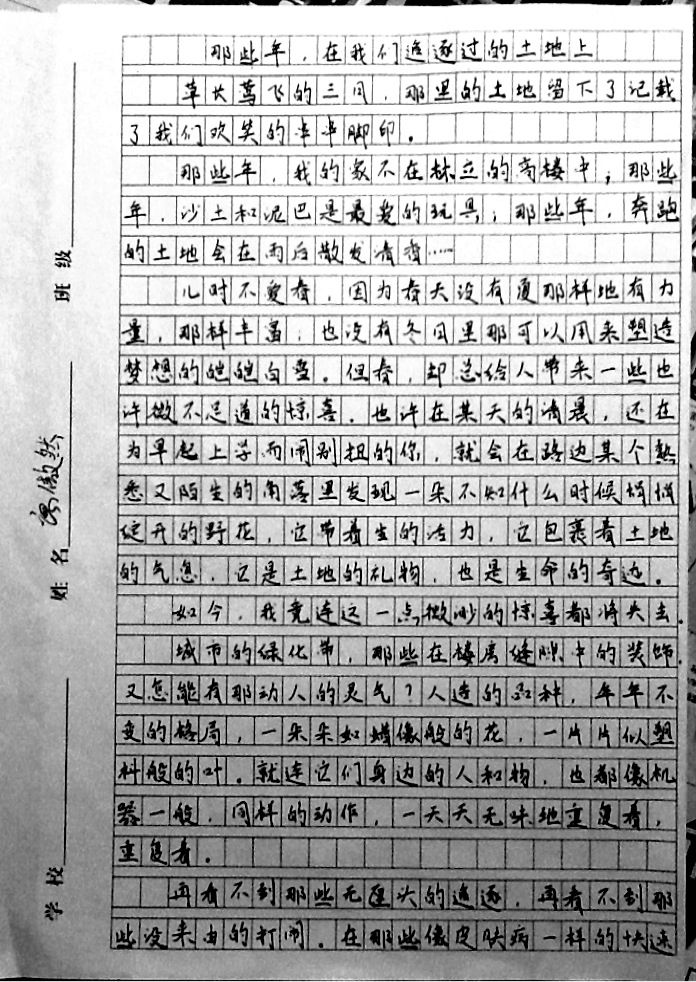 那些年，在我们追逐过的土地上
草长莺飞的三月，那里的土地留下了记载
了我们欢笑的串串脚印。
那些年，我的家不在林立的高楼中；那些
年，沙土和泥巴是最爱的玩具；那些年，奔跑
的土地会在雨后散发清香……
儿时不爱春，因为春天没有夏那样地有力
量，那样丰富，也没有冬日里那可以用来塑造
梦想的皑皑白雪。但春，却总给人带来一些也
许微不足道的惊喜。也许在某天的清晨，还在
为早起上学而闹别扭的你，就会在路边某个熟
悉又陌生的角落里发现一朵不知什么时候悄悄
绽开的野花，它带着生的活力，它包裹着土地
的气息，它是土地的礼物，也是生命的奇迹。
如今，我竟连这一点微妙的惊喜都将失去。
城市的绿化带，那些在楼房缝隙中的装饰
又怎能有那动人的灵气？人造的品种，年年不
变的格局，一朵朵如蜡像般的花，一片片似塑
料般的叶。就连它们身边的人和物，也都像机
器一般，同样的动作，一天天无味地重复着，
重复着。
再看不到那些无厘头的追逐，再看不到那
些没来由的打闹。在那些像皮肤病一样的快速
班级
姓名
傲然
学校